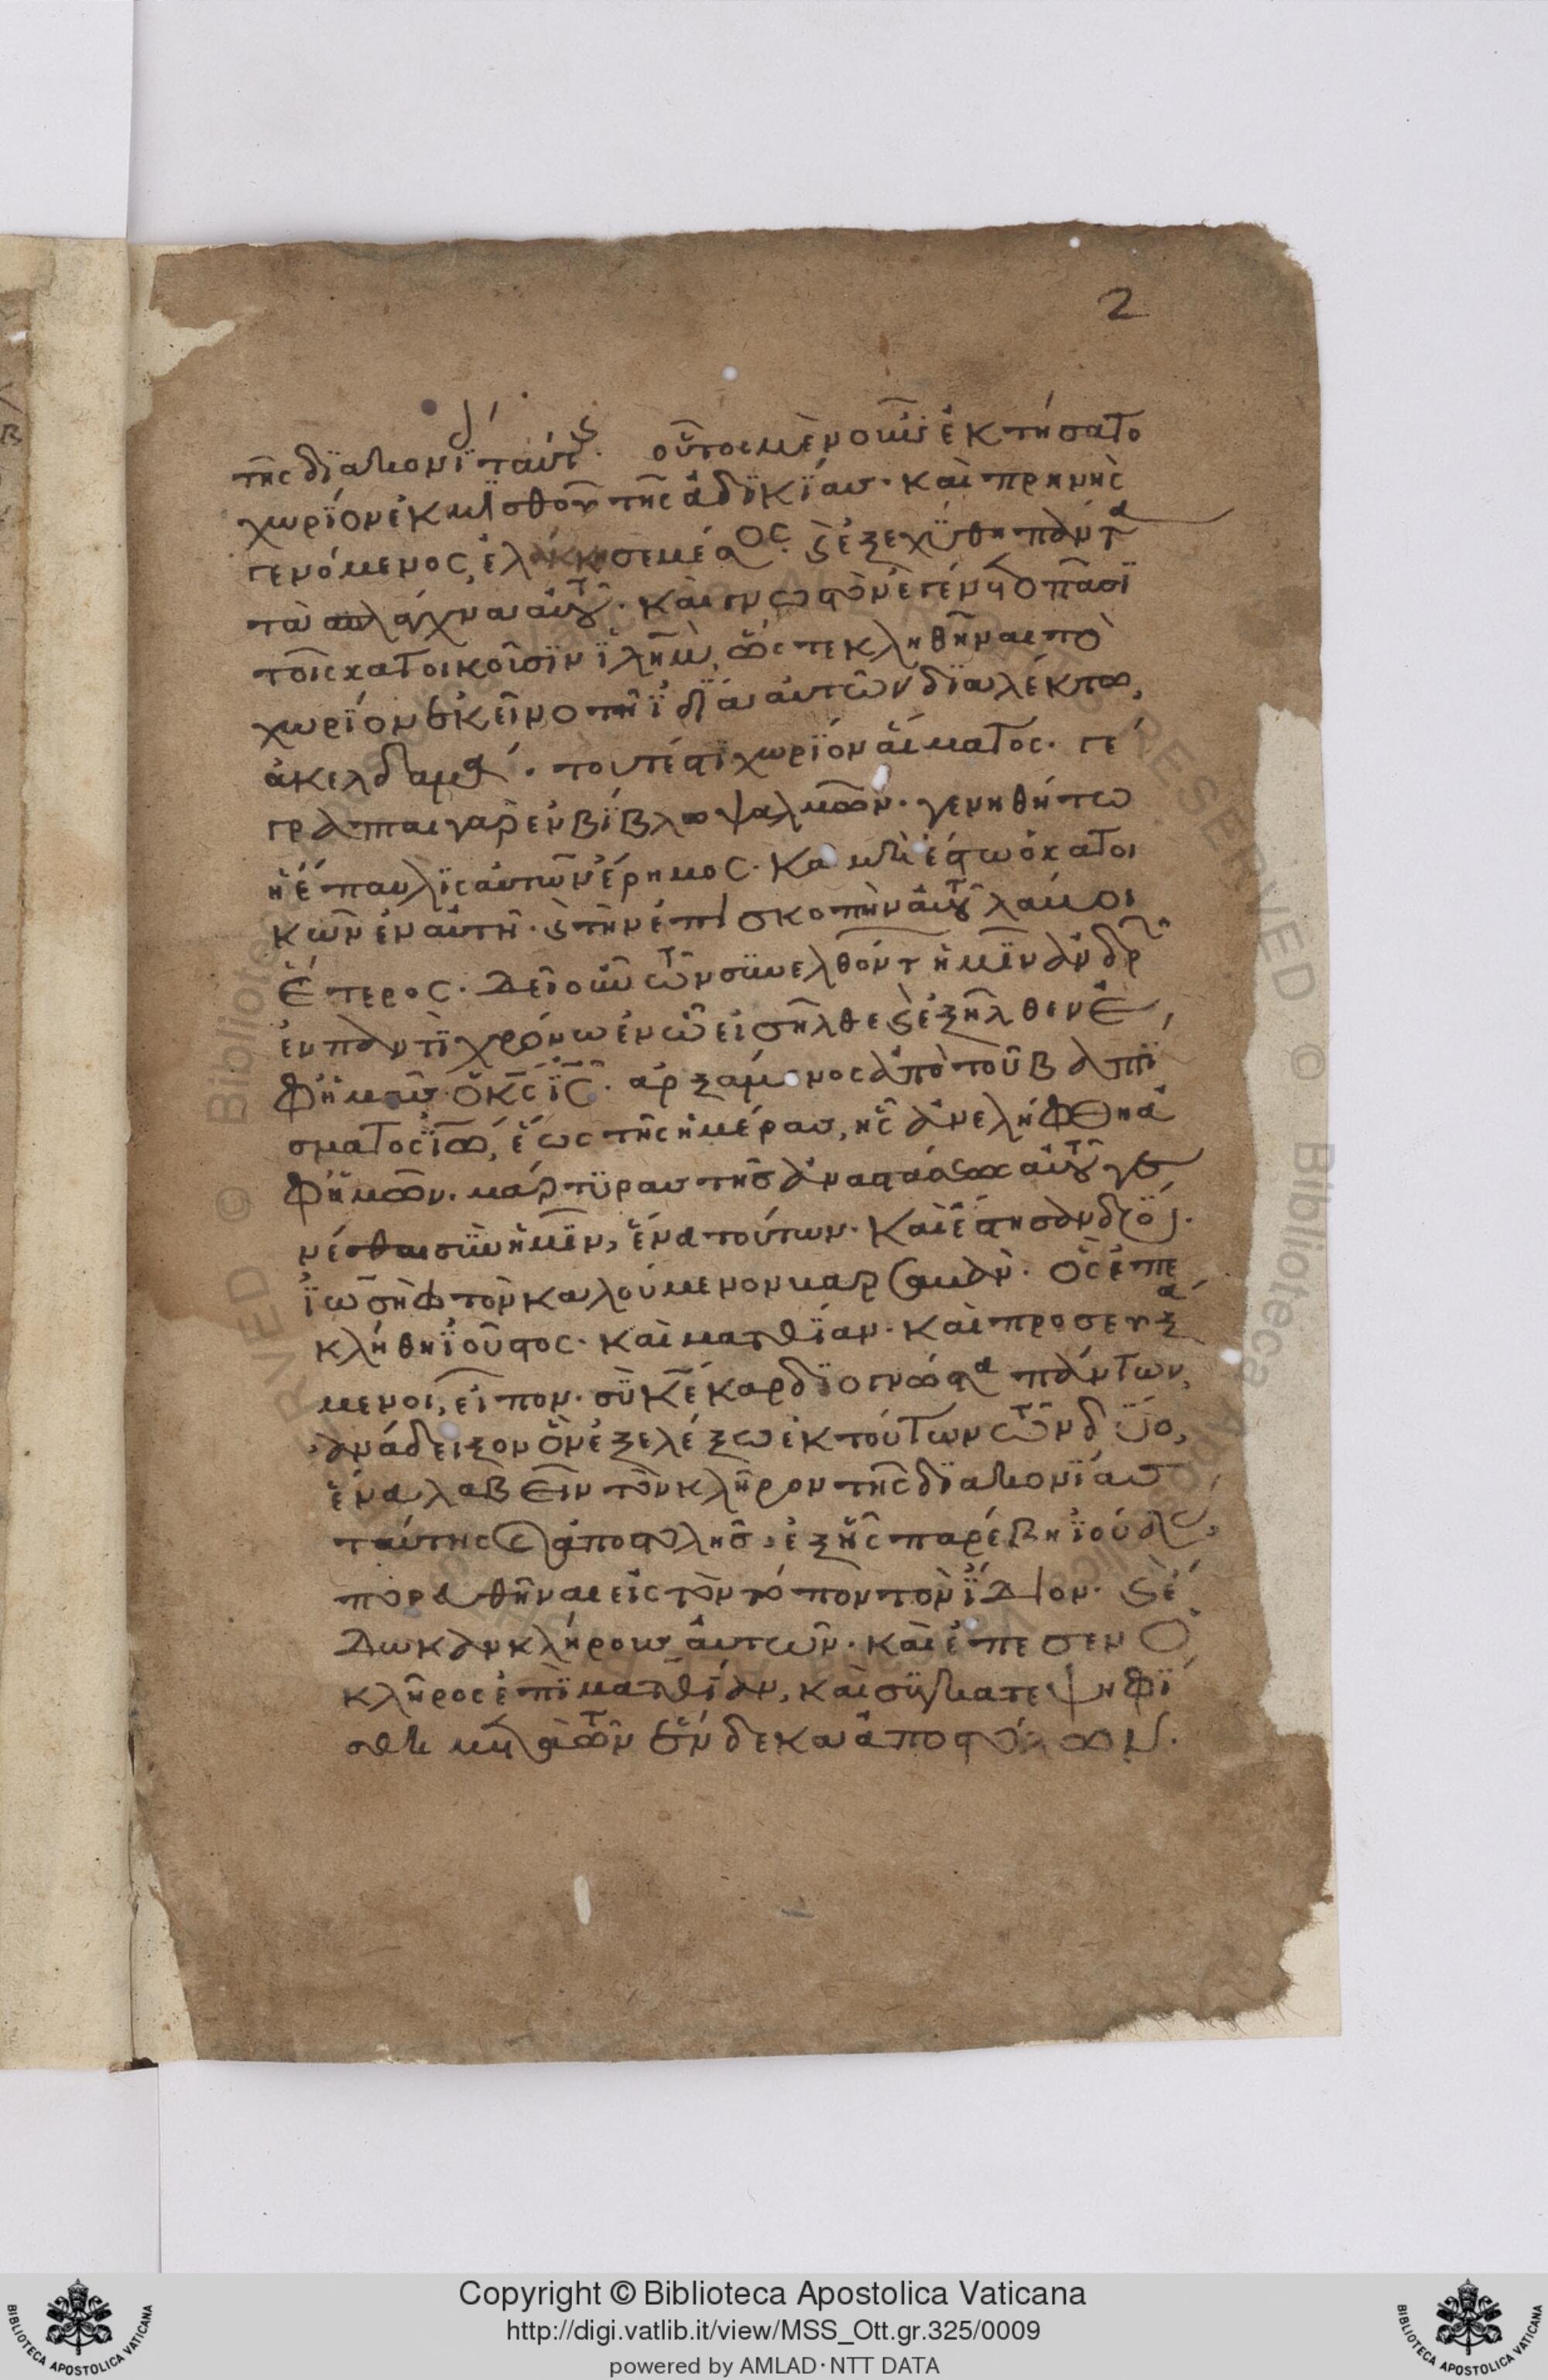 2
τῆς διακονίας ταύτης. οὗτος μὲν οὖν ἐκτήσατο
χωρίον ἐκ μισθοῦ τῆς ἀδικίας· καὶ πρηνὴς
γενόμενος, ἐλάκησε μέσος. ϛ ἐξεχύθη πάντα
τὰ σπλάγχνα αὐτοῦ. καὶ γνωστὸν ἐγένετο πᾶσι
τοῖς κατοικοῦσιν ἱλῆμ, ὥστε κληθῆναι τὸ
χωρίον ἐκεῖνο τῇ ἰδίᾳ αὐτῶν διαλέκτω,
ἀκελδαμά. τουτέστι χωρίον αἵματος. γέ
γραπται γὰρ ἐν βίβλω ψαλμῶν. γενηθήτω
ἡ έπαυλις αὐτῶν έρημος. καὶ μὴ έστω ὁ κατοι
κῶν ἐν αὐτῆ. ϛ τὴν ἐπισκοπὴν αὐτοῦ λάβοι
ἕτερος. Δεῖ οὖν τῶν συνελθόντων ἡμῖν ἀνδρῶν
ἐν παντὶ χρόνω ἐν ὧ εἰσῆλθε ϛ ἐξῆλθεν ἐ
φ' ἡμᾶς ὁ κς ις. ἀρξάμενος ἀπὸ τοῦ βαπτί
σματος ἰῶ, ἕως τῆς ἡμέρας, ἧς ἀνελήφθη ἀ
φ' ἡμῶν. μάρτυρα τῆς ἀναστάσεως αὐτοῦ γε
νέσθαι σὺν ἡμῖν, ἕνα τούτων. καὶ έστησαν δύο.
ἰωσὴφ τὸν καλούμενον βαρσαβᾶν. ὃς ἐπε
κλήθη ἰοῦστος. καὶ ματθίαν. καὶ προσευξά
μενοι, εἶπον. σὺ κε καρδιογνῶστα πάντων,
ἀνάδειξον ὃν ἐξελέξω ἐκ τούτων τῶν δύο,
ἕνα λαβεῖν τὸν κλῆρον τῆς διακονίας
ταύτης ϛ ἀποστολῆς, ἐξ ἧς παρέβη ἰούδας,
πορευθῆναι εἰς τὸν τόπον τὸν ίδιον. ϛ έ
δωκαν κλήρους αὐτῶν. καὶ έπεσεν ὁ
κλῆρος ἐπὶ ματθίαν, καὶ συγκατεψηφί
σθη μετὰ τῶν ἕνδεκα ἀποστόλων.
Copyright © Biblioteca Apostolica Vaticana
http://digi.vatlib.it/view/MSS_Ott.gr.325/0009
powered by AMLAD·NTT DATA
BIBLIOTECA APOSTOLICA VATICANA
BIBLIOTECA APOSTOLICA VATICANA